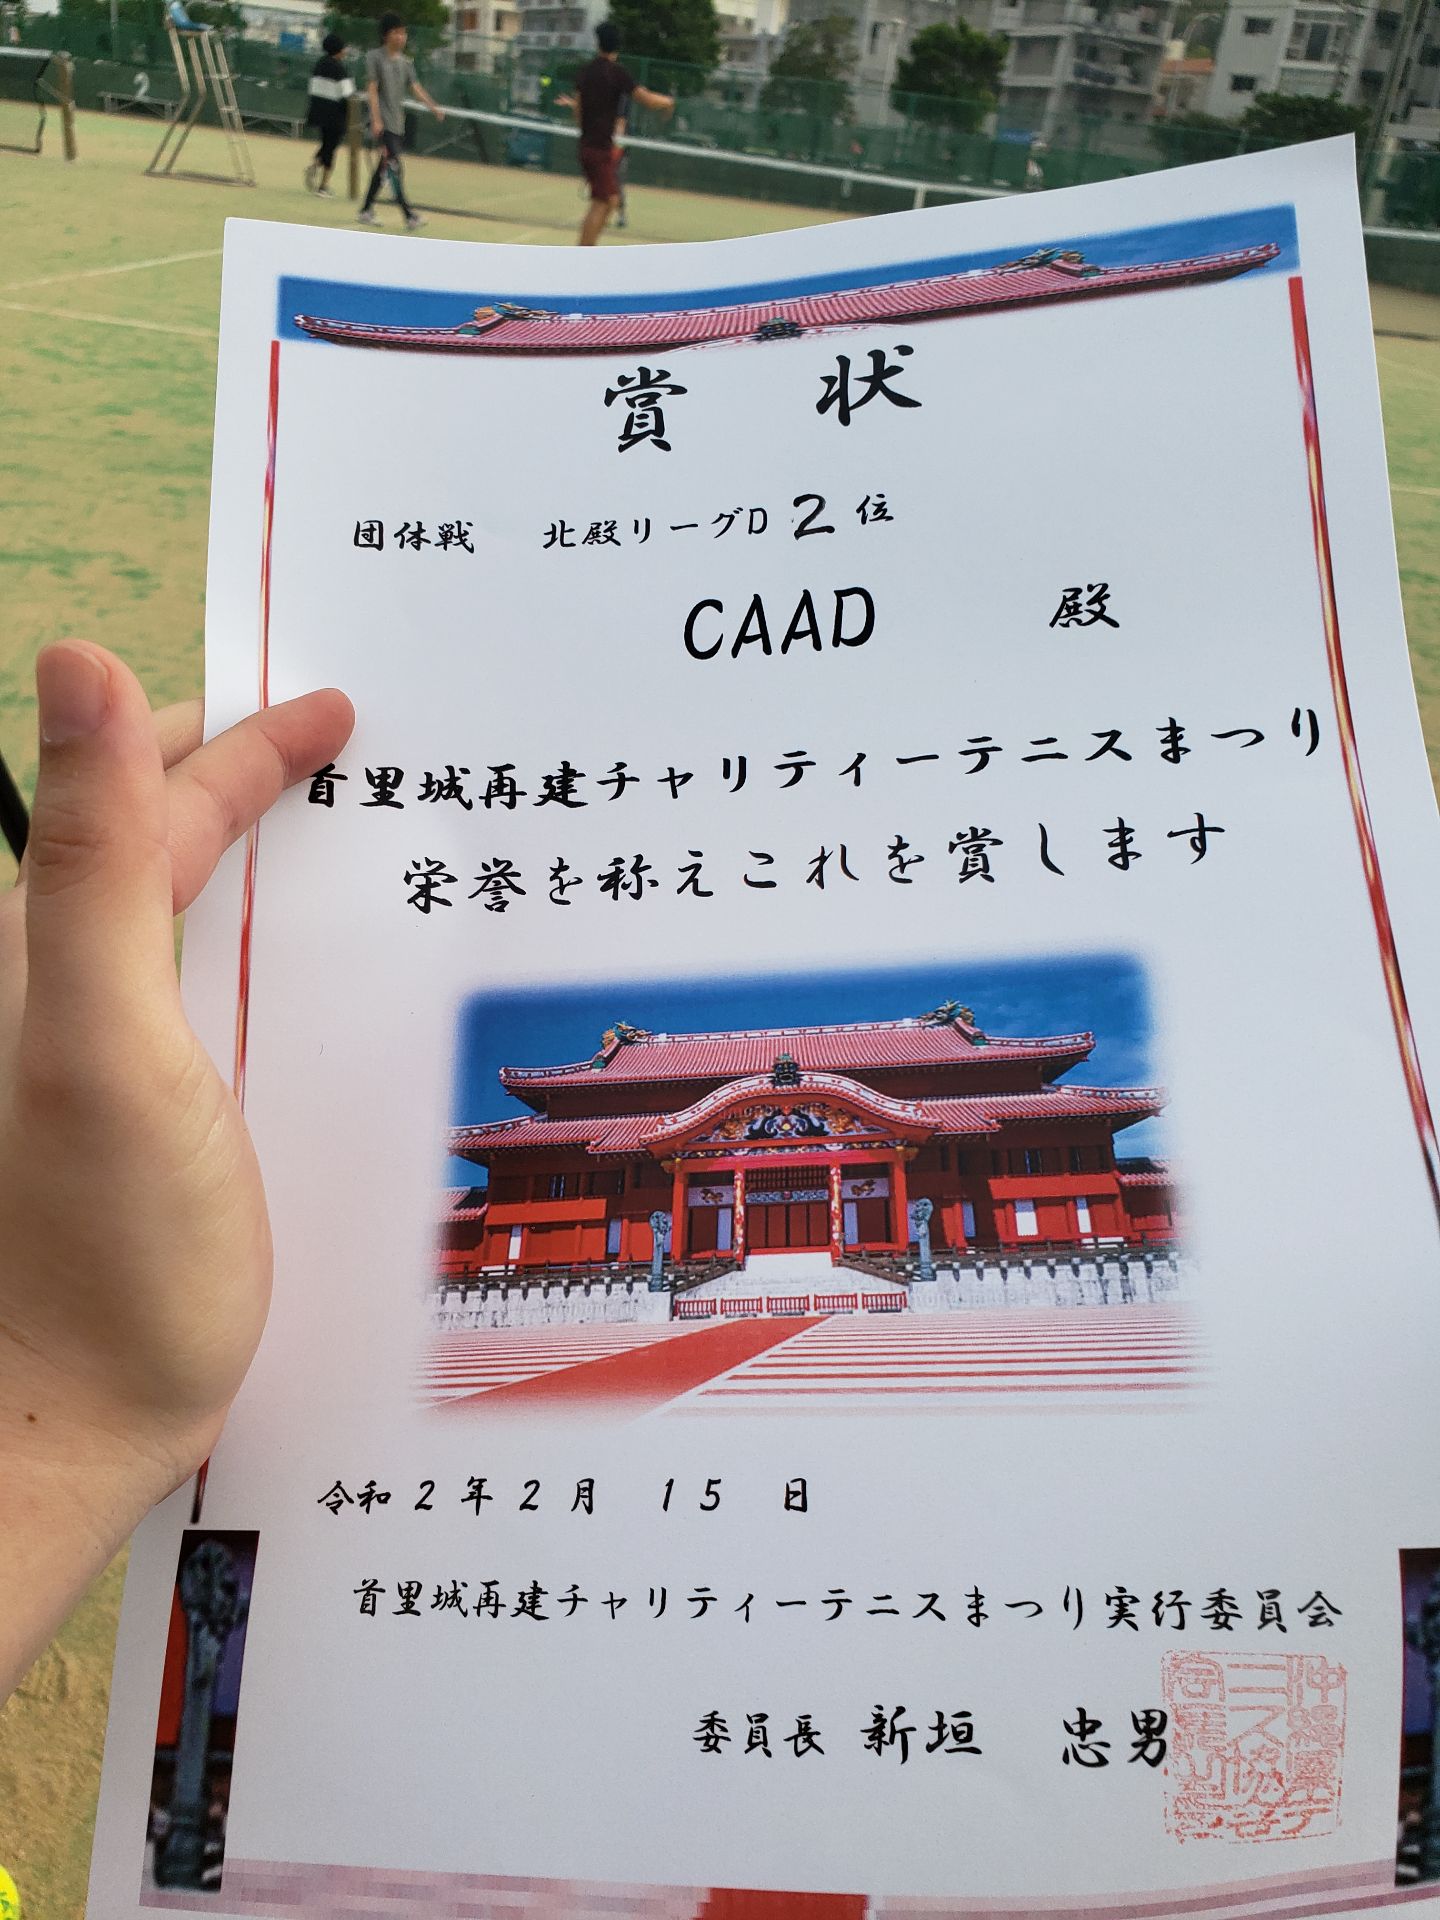 2
賞 状
団体戦 北殿リーグD 2 位
CAAD 殿
首里城再建チャリティーテニスまつり
栄誉を称えこれを賞します
令和2年2月 15 日
首里城再建チャリティーテニスまつり実行委員会
委員長 新垣 忠男